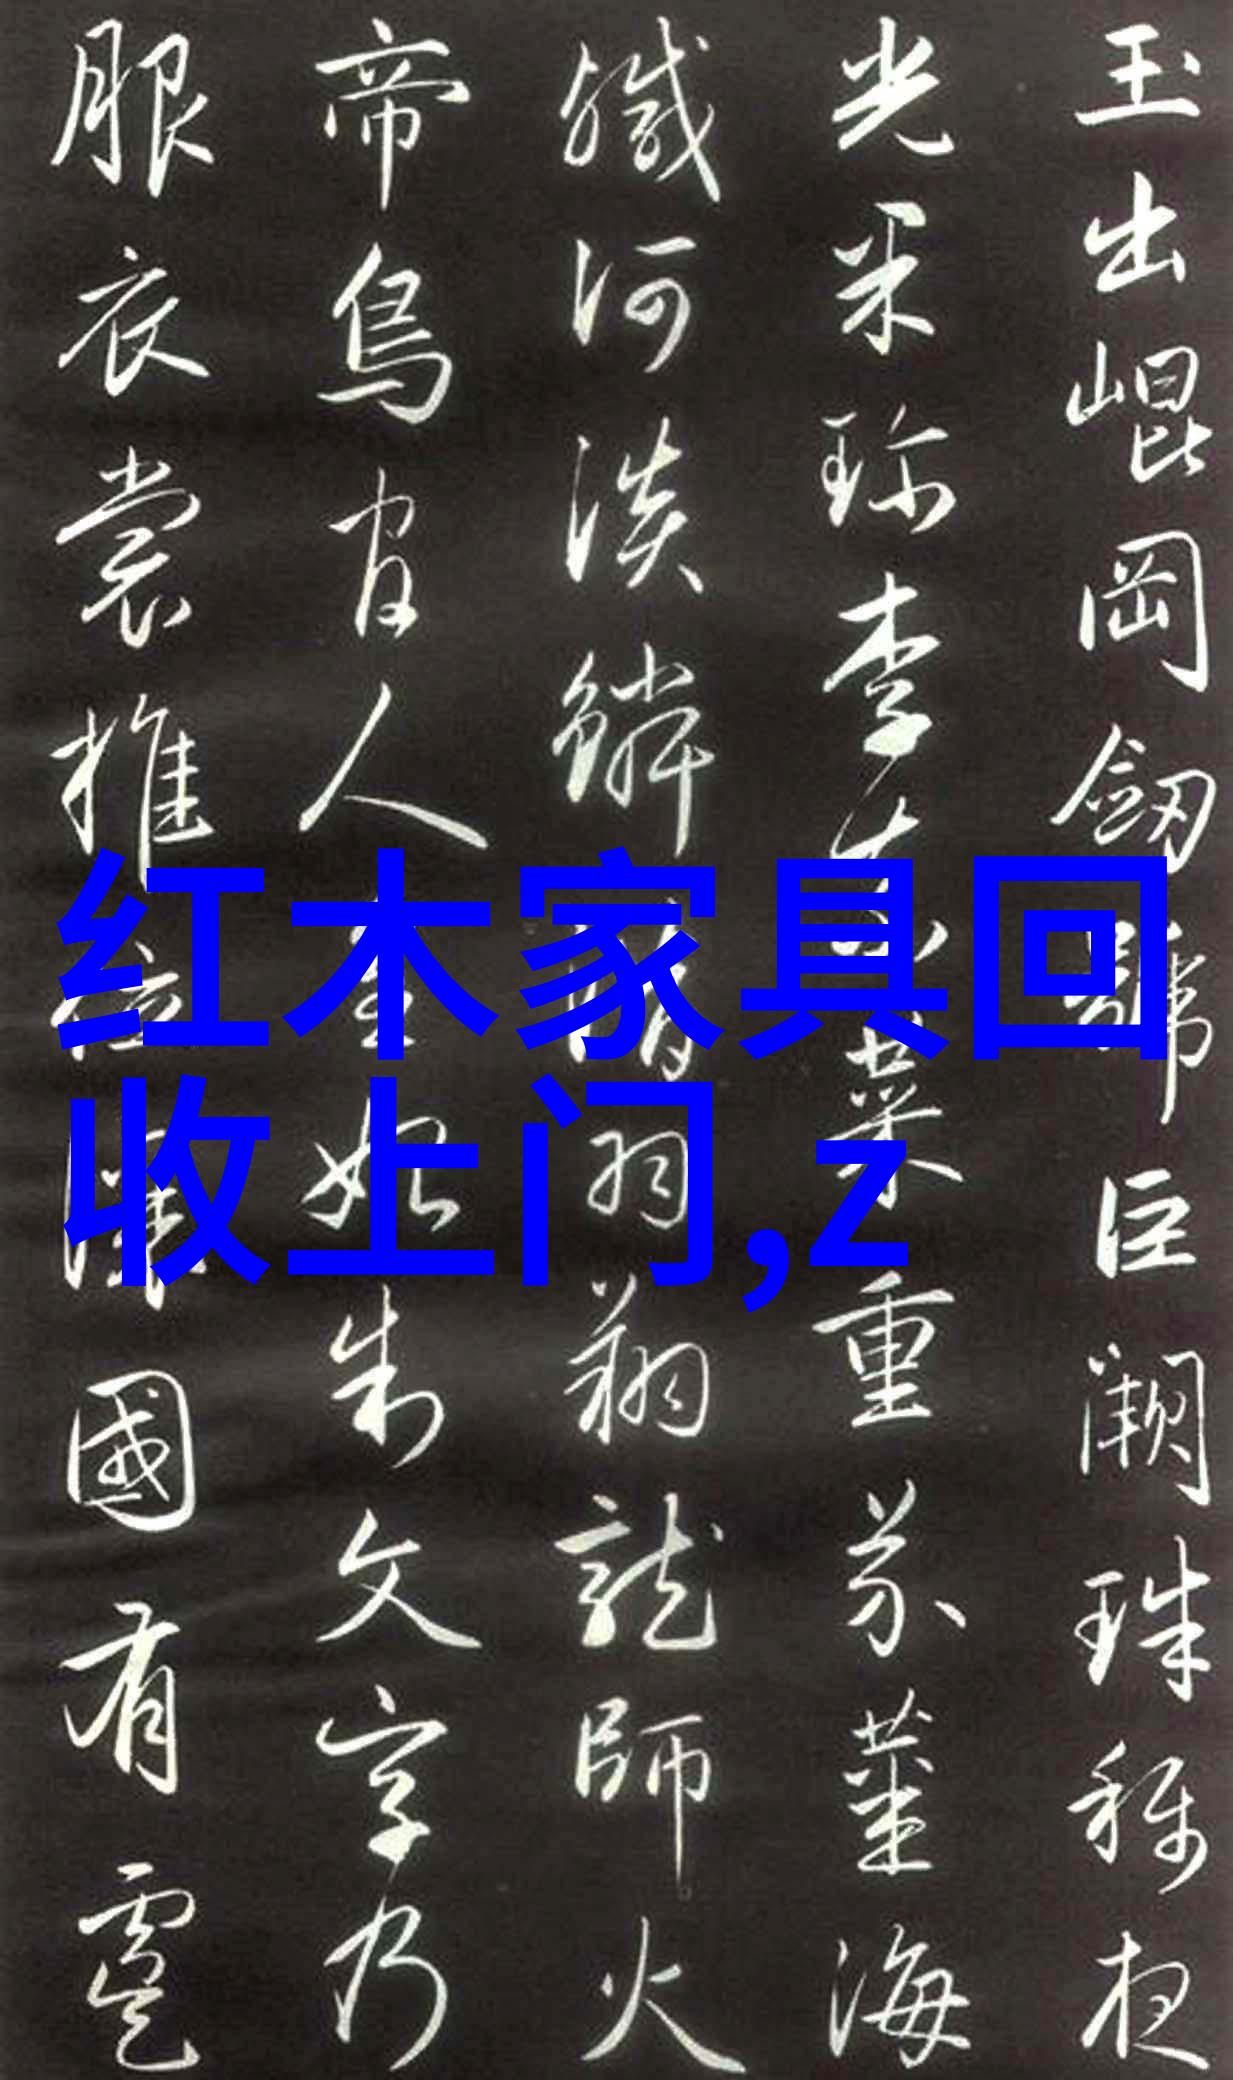 玉出崐岡劒號巨闕珠稱夜
光果珍李柰菜重芥薑海
鹹河淡鱗潛羽翔龍師火
帝鳥官人皇始制文字乃
服衣裳推位讓國有虞
红木家具回
收上门,z